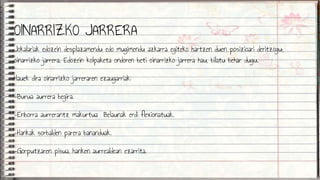 OINARRIZKO JARRERA
Jokalariak edozein desplazamendu edo mugimendu azkarra egiteko hartzen duen posizioari deritzogu,
oinarrizko jarrera. Edozein kolpaketa ondoren beti oinarrizko jarrera hau, bilatu behar dugu.
Hauek dira oinarrizko jarreraren ezaugarriak:
-Burua aurrera begira.
-Enborra aurrerantz makurtua. Belaunak erdi flexionatuak.
-Hankak sorbalden parera bananduak.
-Gorputzaren pisua, hanken aurrealdean ezarrita.